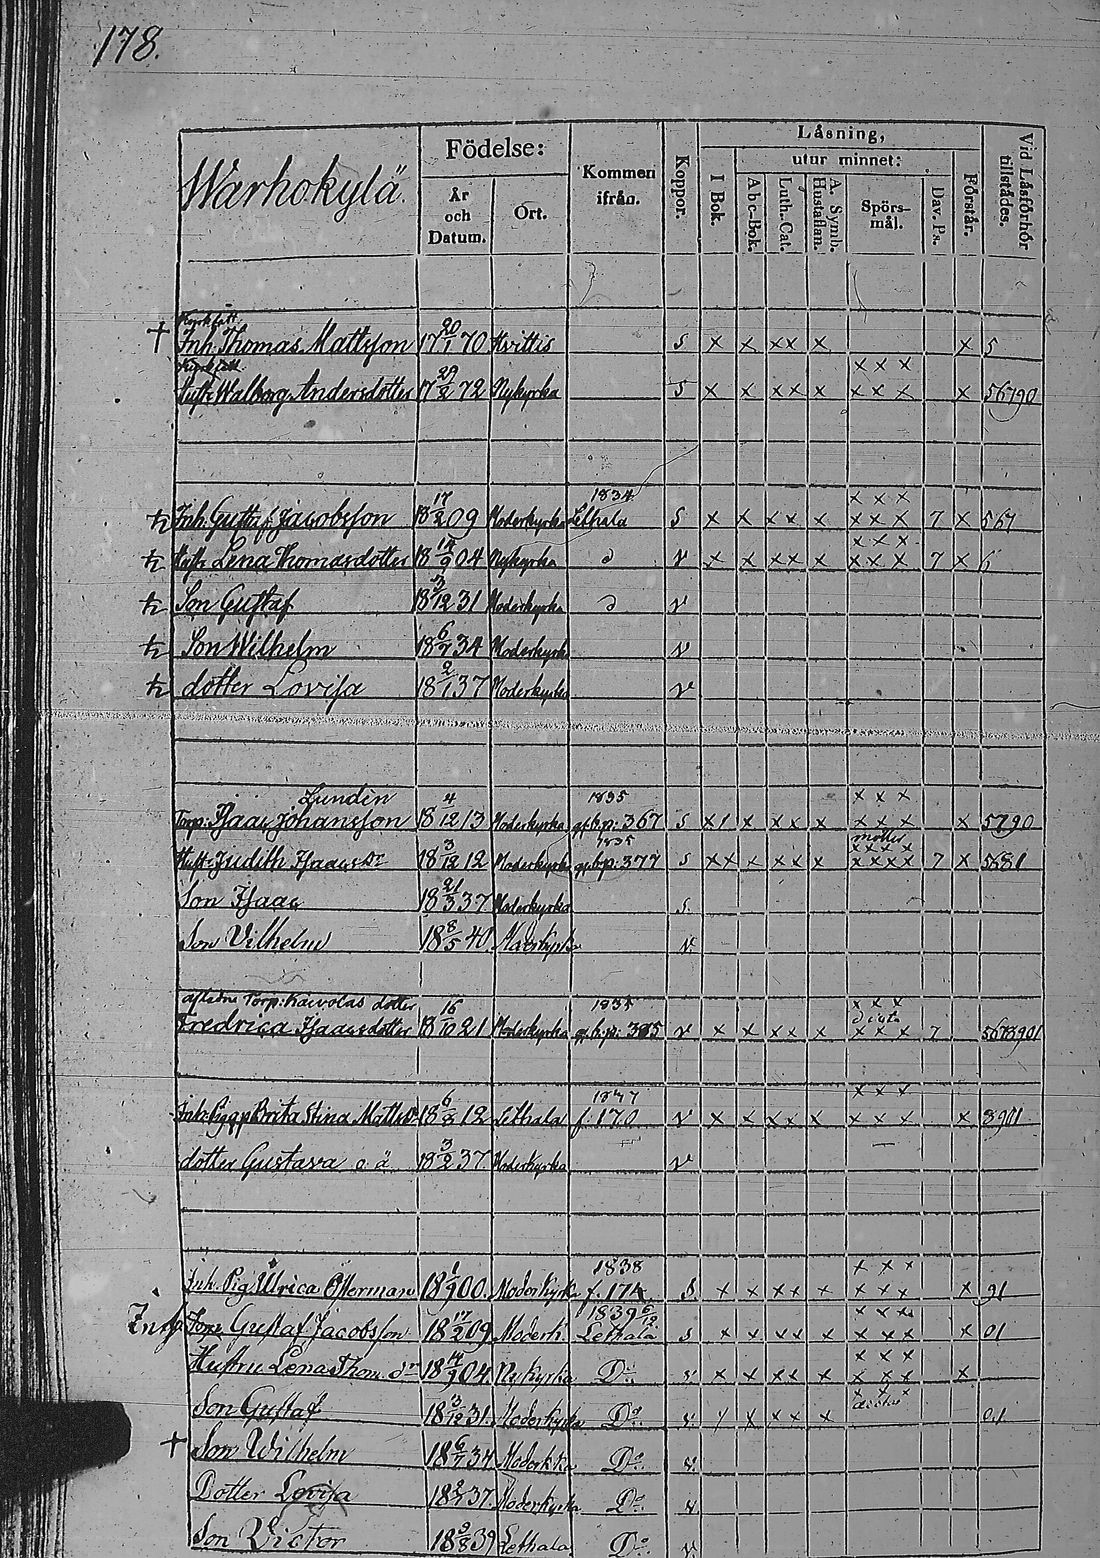 178.
Warhokylä.
Födelse:
År och Datum.
Ort.
Kommen ifrån.
Koppor.
Läsning,
utur minnet:
I Bok.
Abc-Bok.
Luth. Cat.
A. Symb. Hustaflan.
Spörs-mål.
Dav. Ps.
Förstår.
Vid Läsförhör tillstädes.
† Inh. Thomas Mattsson 17 20/1 70 Hvittis S x x xx x x 5
x x x
Hustr. Walborg Andersdotter 17 29/2 72 Nykyrka S x x xx x x x x x 56790
17 1834 x x x
Inh. Gustaf Jacobsson 18 17/2 09 Moderkyrka Lethala S x x xx x x x x 7 x 567
x x x
Hustr. Lena Thomasdotter 18 14/9 04 Nykyrka d v x x xx x x x x 7 x 6
Son Gustaf 18 3/12 31 Moderkyrka d v
Son Wilhelm 18 6/7 34 Moderkyrk v
dotter Lovisa 18 2/1 37 Moderkyrka v
Lundin 1835 x x x
Torp: Isaac Johansson 18 4/12 13 Moderkyrka gl.b.p. 367 S x x xx x x x x x 5790
1835
Hustr. Judith Isaacsdr 18 3/12 12 Moderkyrka gl.b.p. 377 S xx x xx x xxxx 7 x 5681
Son Isaac 18 21/3 37 Moderkyrka S
Son Vilhelm 18 8/5 40 v
dotter 1835 x x x
Fredrica Isaacsdotter 18 16/10 21 Moderkyrka gl.b.p. 385 v x x xx x x x x 7
1847 x x x
Brita Stina Matts 18 6/8 12 Lethala f. 170 v x x xx x x x x x 8901
dotter Gustava o ä 18 3/2 37 Moderkyrka v
1838 x x x
Inh. Pig. Ulrica Österman 18 1/9 00. Moderkyrk f. 174 S x x xx x x x x x 91
1839 x x x
Inh. Gustaf Jacobsson 18 17/2 09 Moderk. Lethala S x x xx x x x x x 01
x x x
Hustru Lena Thom. dr 18 14/9 04 Nykyrka Do. v x x xx x x x x x
x x x
Son Gustaf 18 3/12 31. Moderkyrka Do. v x xx x 01
† Son Wilhelm 18 6/7 34 Do. v.
Dotter Lovisa 18 2/1 37. Moderkyrka Do. v
Son Victor 18 9/8 39 Lethala Do. v.